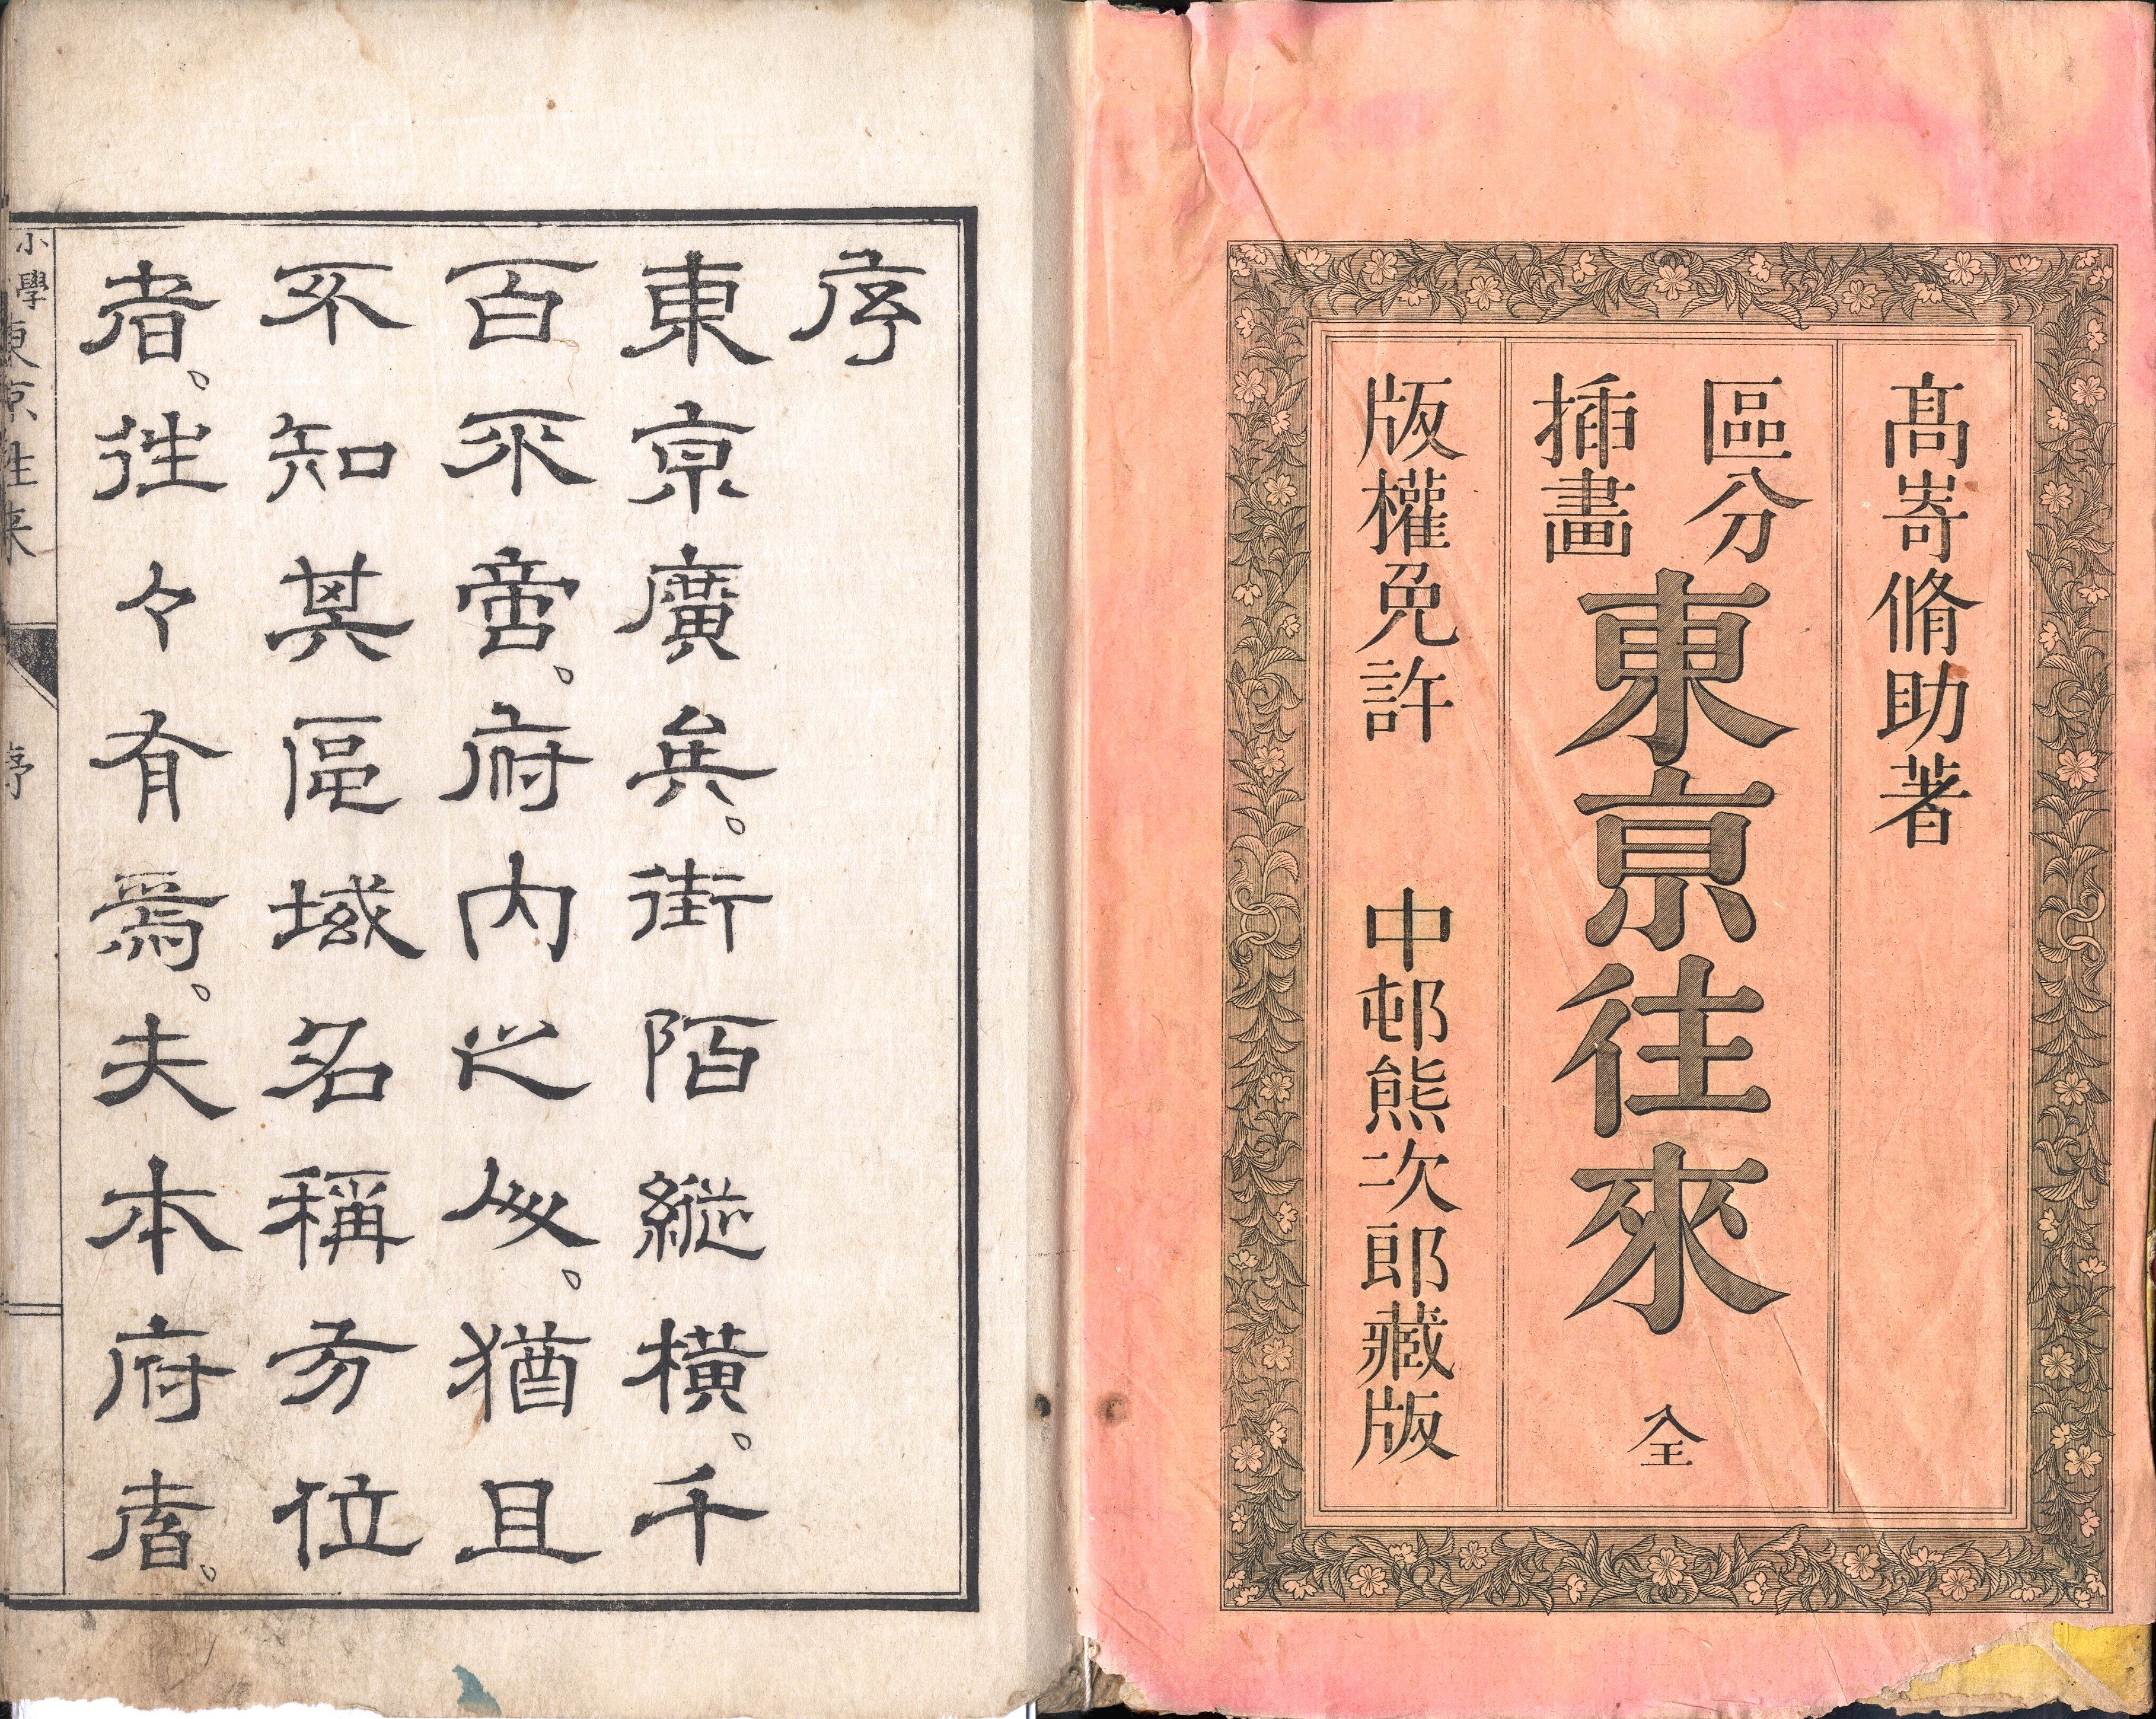 髙嵜脩助著
區分
插畫
東京往來 全
版權免許 中邨熊次郎藏版
序
東京廣矣。街陌縱橫。千
百不啻。府内之人。猶且
不知其區域名稱方位
者。往々有焉。夫本府者。
小學東京往來
序